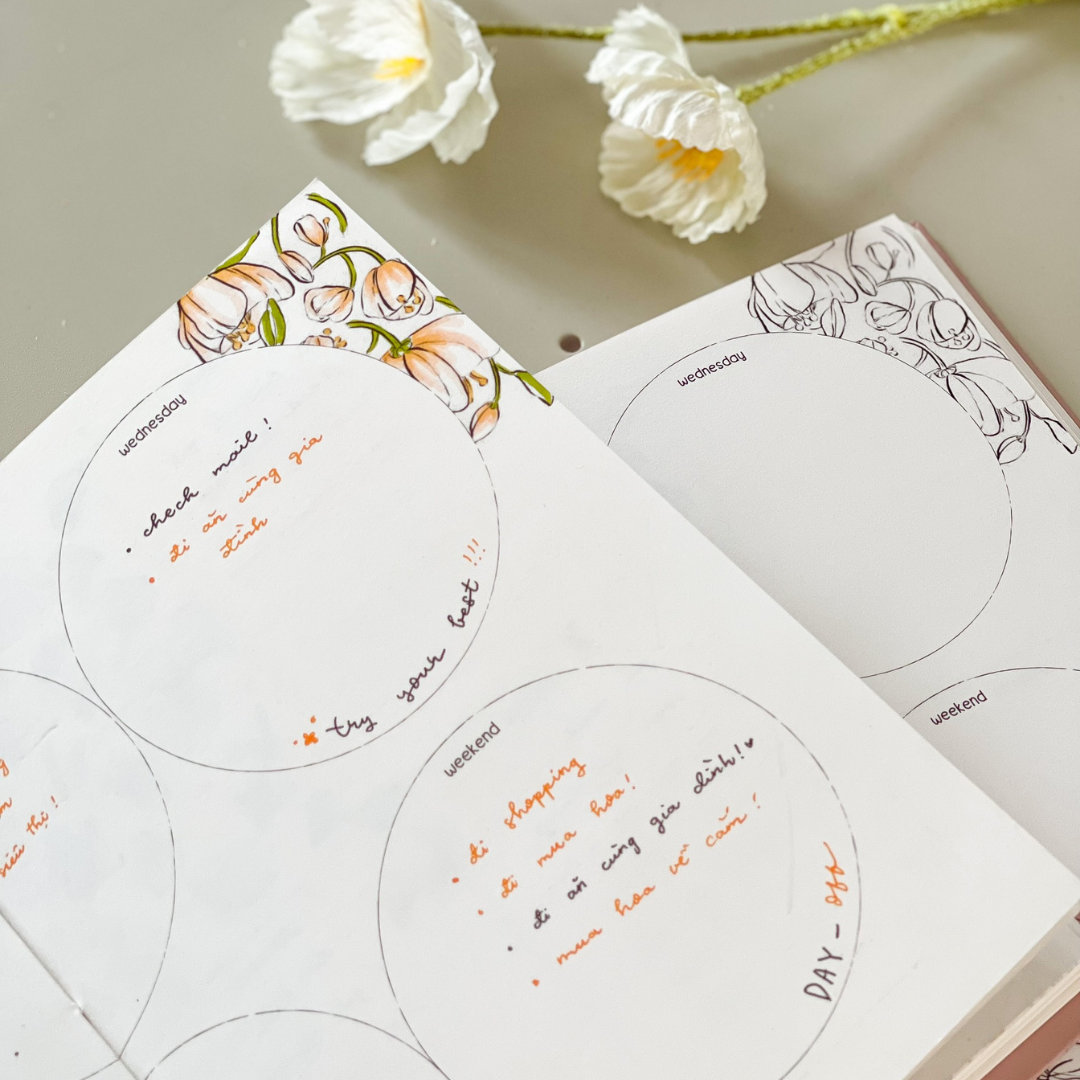 wednesday
• check mail !
• đi ăn cùng gia
đình
try your best !!!
siêu thị !
weekend
• đi shopping
• đi mua hoa!
• đi ăn cùng gia đình! ♥
• mua hoa về cắm !
DAY - off
wednesday
weekend